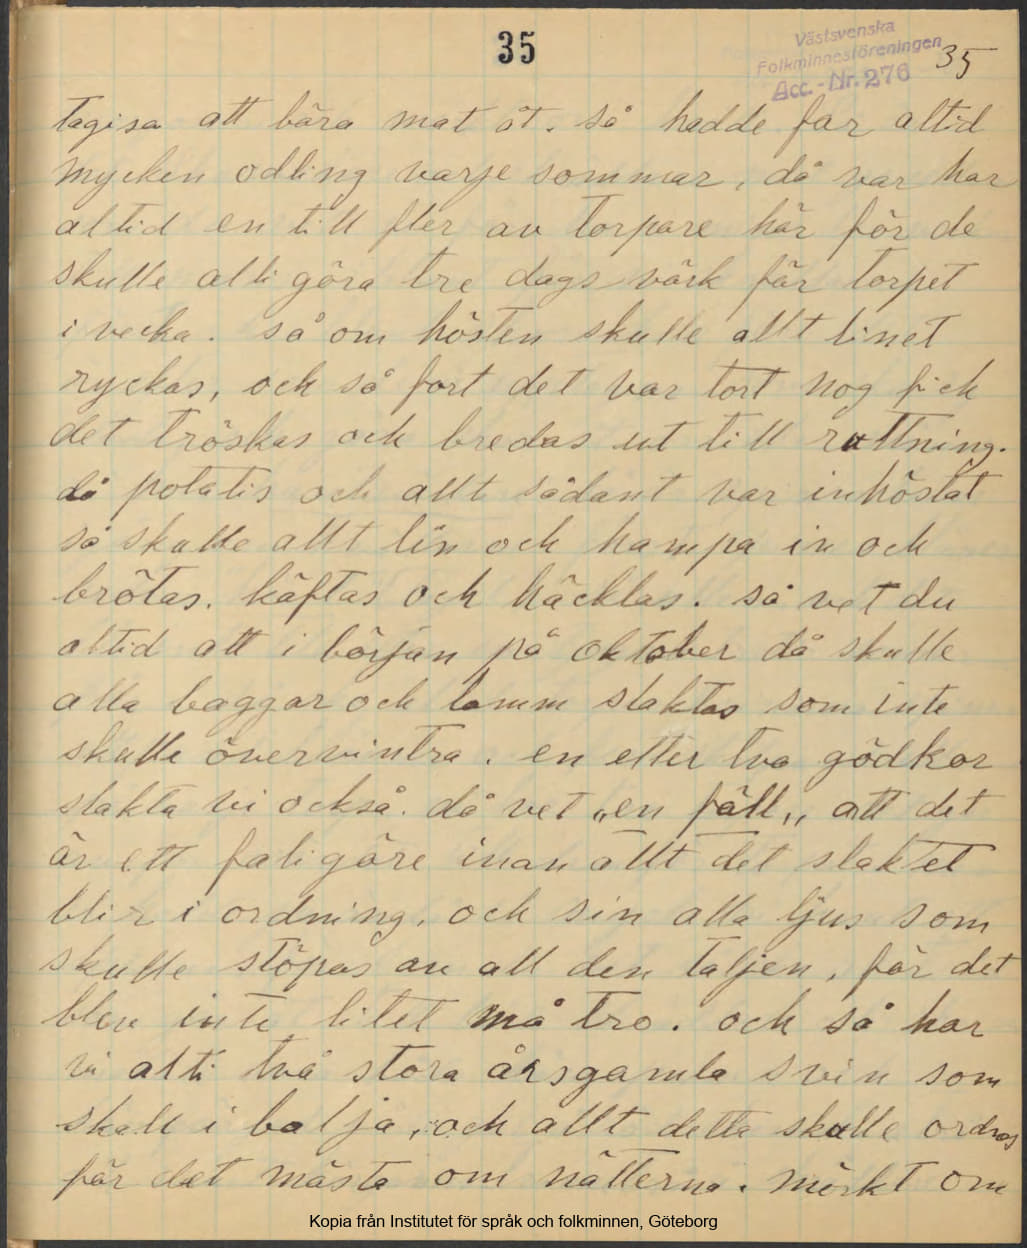 35
Västsvenska
Folkminnesföreningen
Acc.-Nr. 276
35
tagisa att bära mat åt. så hadde far altid
mycken odling varje sommar, då var har
altid en till fler av torpare här för de
skulle alti göra tre dags värk får torpet
i vecka. så om hösten skulle allt linet
ryckas, och så fort det var tort nog fick
det tröskas och bredas ut till ruttning.
då potatis och allt sådant var inhöstat
så skulle allt lin och hampa in och
brötas. käftas och häcklas. så vet du
altid att i början på oktober då skulle
alla baggar och lamm slaktas som inte
skulle övervintra. en etter tva gödkor
slakta vi också. då vet „en fäll„ att det
är ett faligöre inan allt det slaktet
blir i ordning. och sin alla ljus som
skulle stöpas av all den taljen, får det
blev inte litet må tro. och så har
vi alti två stora årsgamla svin som
skall i balja, och allt detta skulle ordnas
får det mästa om nätterna. mörkt om
Kopia från Institutet för språk och folkminnen, Göteborg